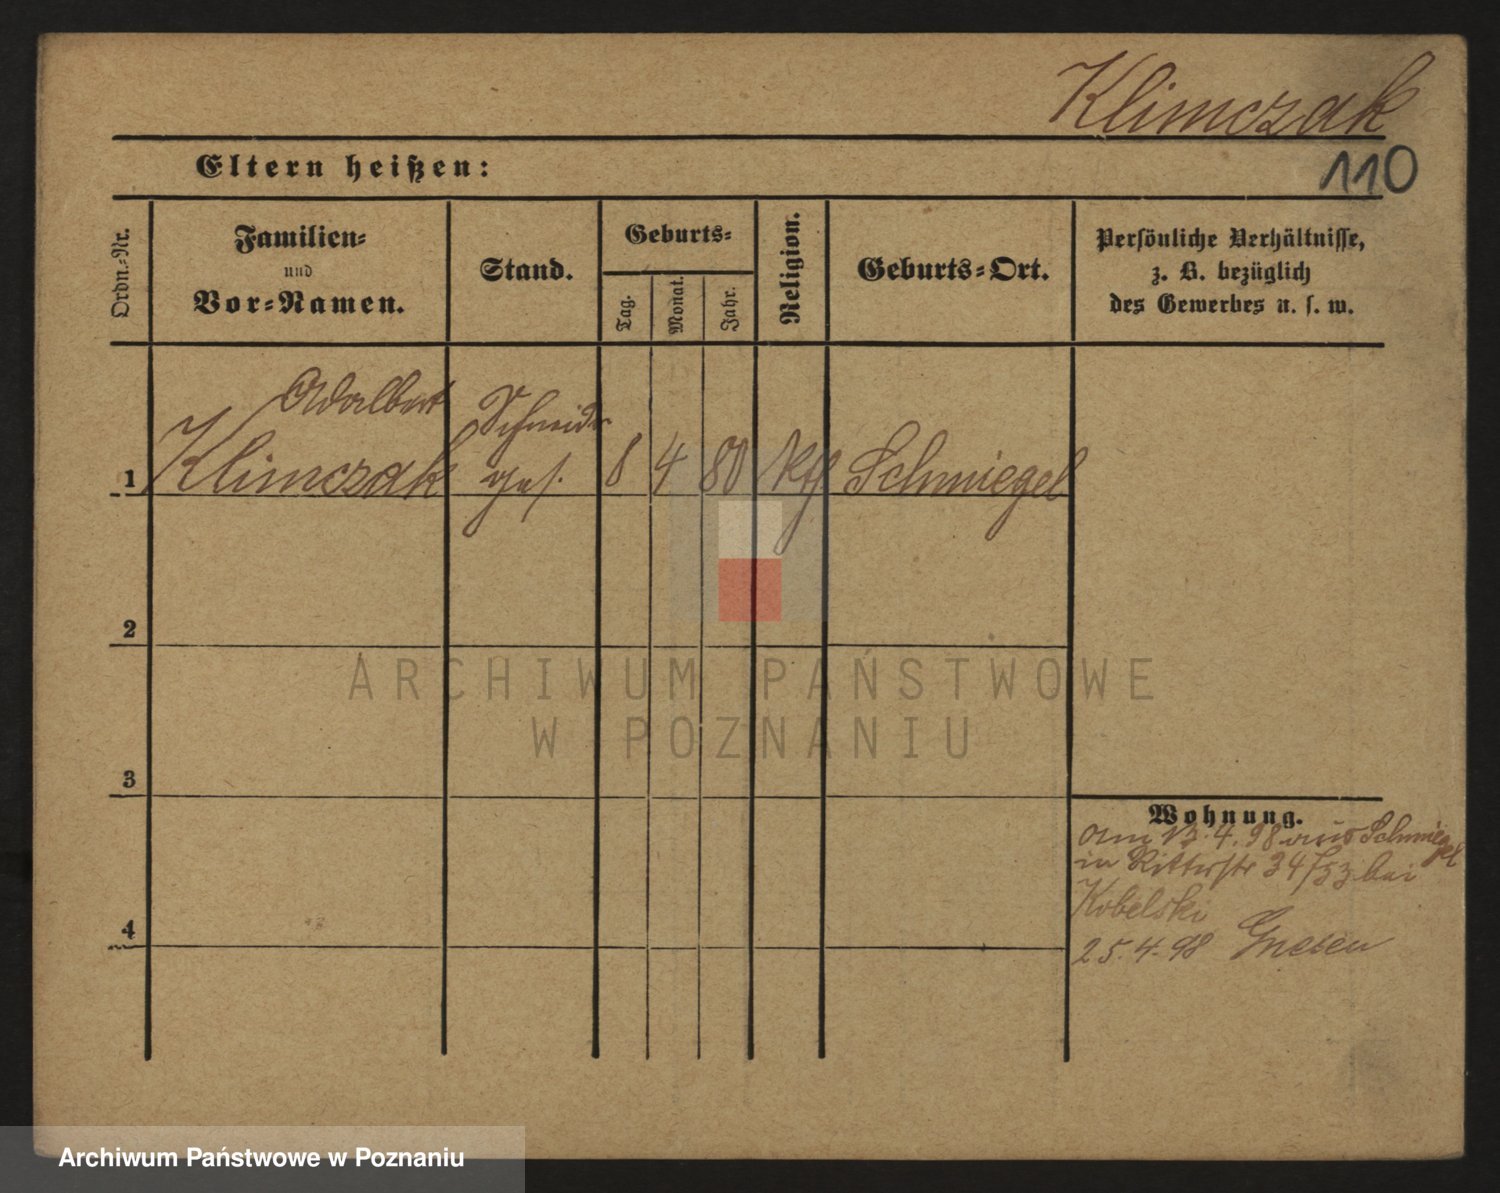 Klimczak
110
Eltern heißen:
Ordn.-Nr.
Familien-
und
Vor-Namen.
Stand.
Geburts-
Tag.
Monat.
Jahr.
Religion.
Geburts-Ort.
Persönliche Verhältnisse,
z. B. bezüglich
des Gewerbes u. s. w.
Adalbert
Schneider
1 Klimczak ges. 8 4 80 Kth Schmiegel
2
3
4
Wohnung.
Am 13.4.98 aus Schmiegel
in Ritterstr 34/53 bei
Kobelski
25.4.98 Gnesen
ARCHIWUM PAŃSTWOWE
W POZNANIU
Archiwum Państwowe w Poznaniu